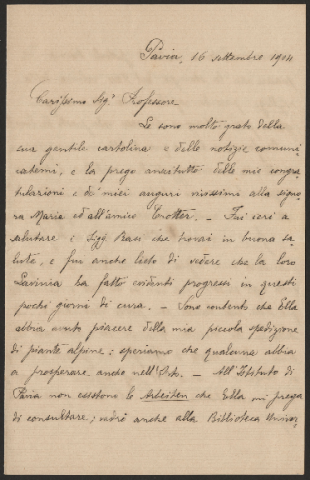 Pavia, 16 settembre 1904
Carissimo Sig.r Professore
Le sono molto grato della
sua gentile cartolina e delle notizie comuni-
catemi, e la prego anzitutto delle mie congra-
tulazioni e de' miei auguri vivissimi alla signo-
ra Maria ed all'amico Trotter. — Fui ieri a
salutare i Sigg. Bassi che trovai in buona sa-
lute, e fui anche lieto di vedere che la loro
Lavinia ha fatto evidenti progressi in questi
pochi giorni di cura. — Sono contento che Ella
abbia avuto piacere della mia piccola spedizione
di piante alpine; speriamo che qualcuna abbia
a prosperare anche nell'Orto. — All'Istituto di
Pavia non esistono le Arbeiten che Ella mi prega
di consultare; vedrò anche alla Biblioteca Univer-